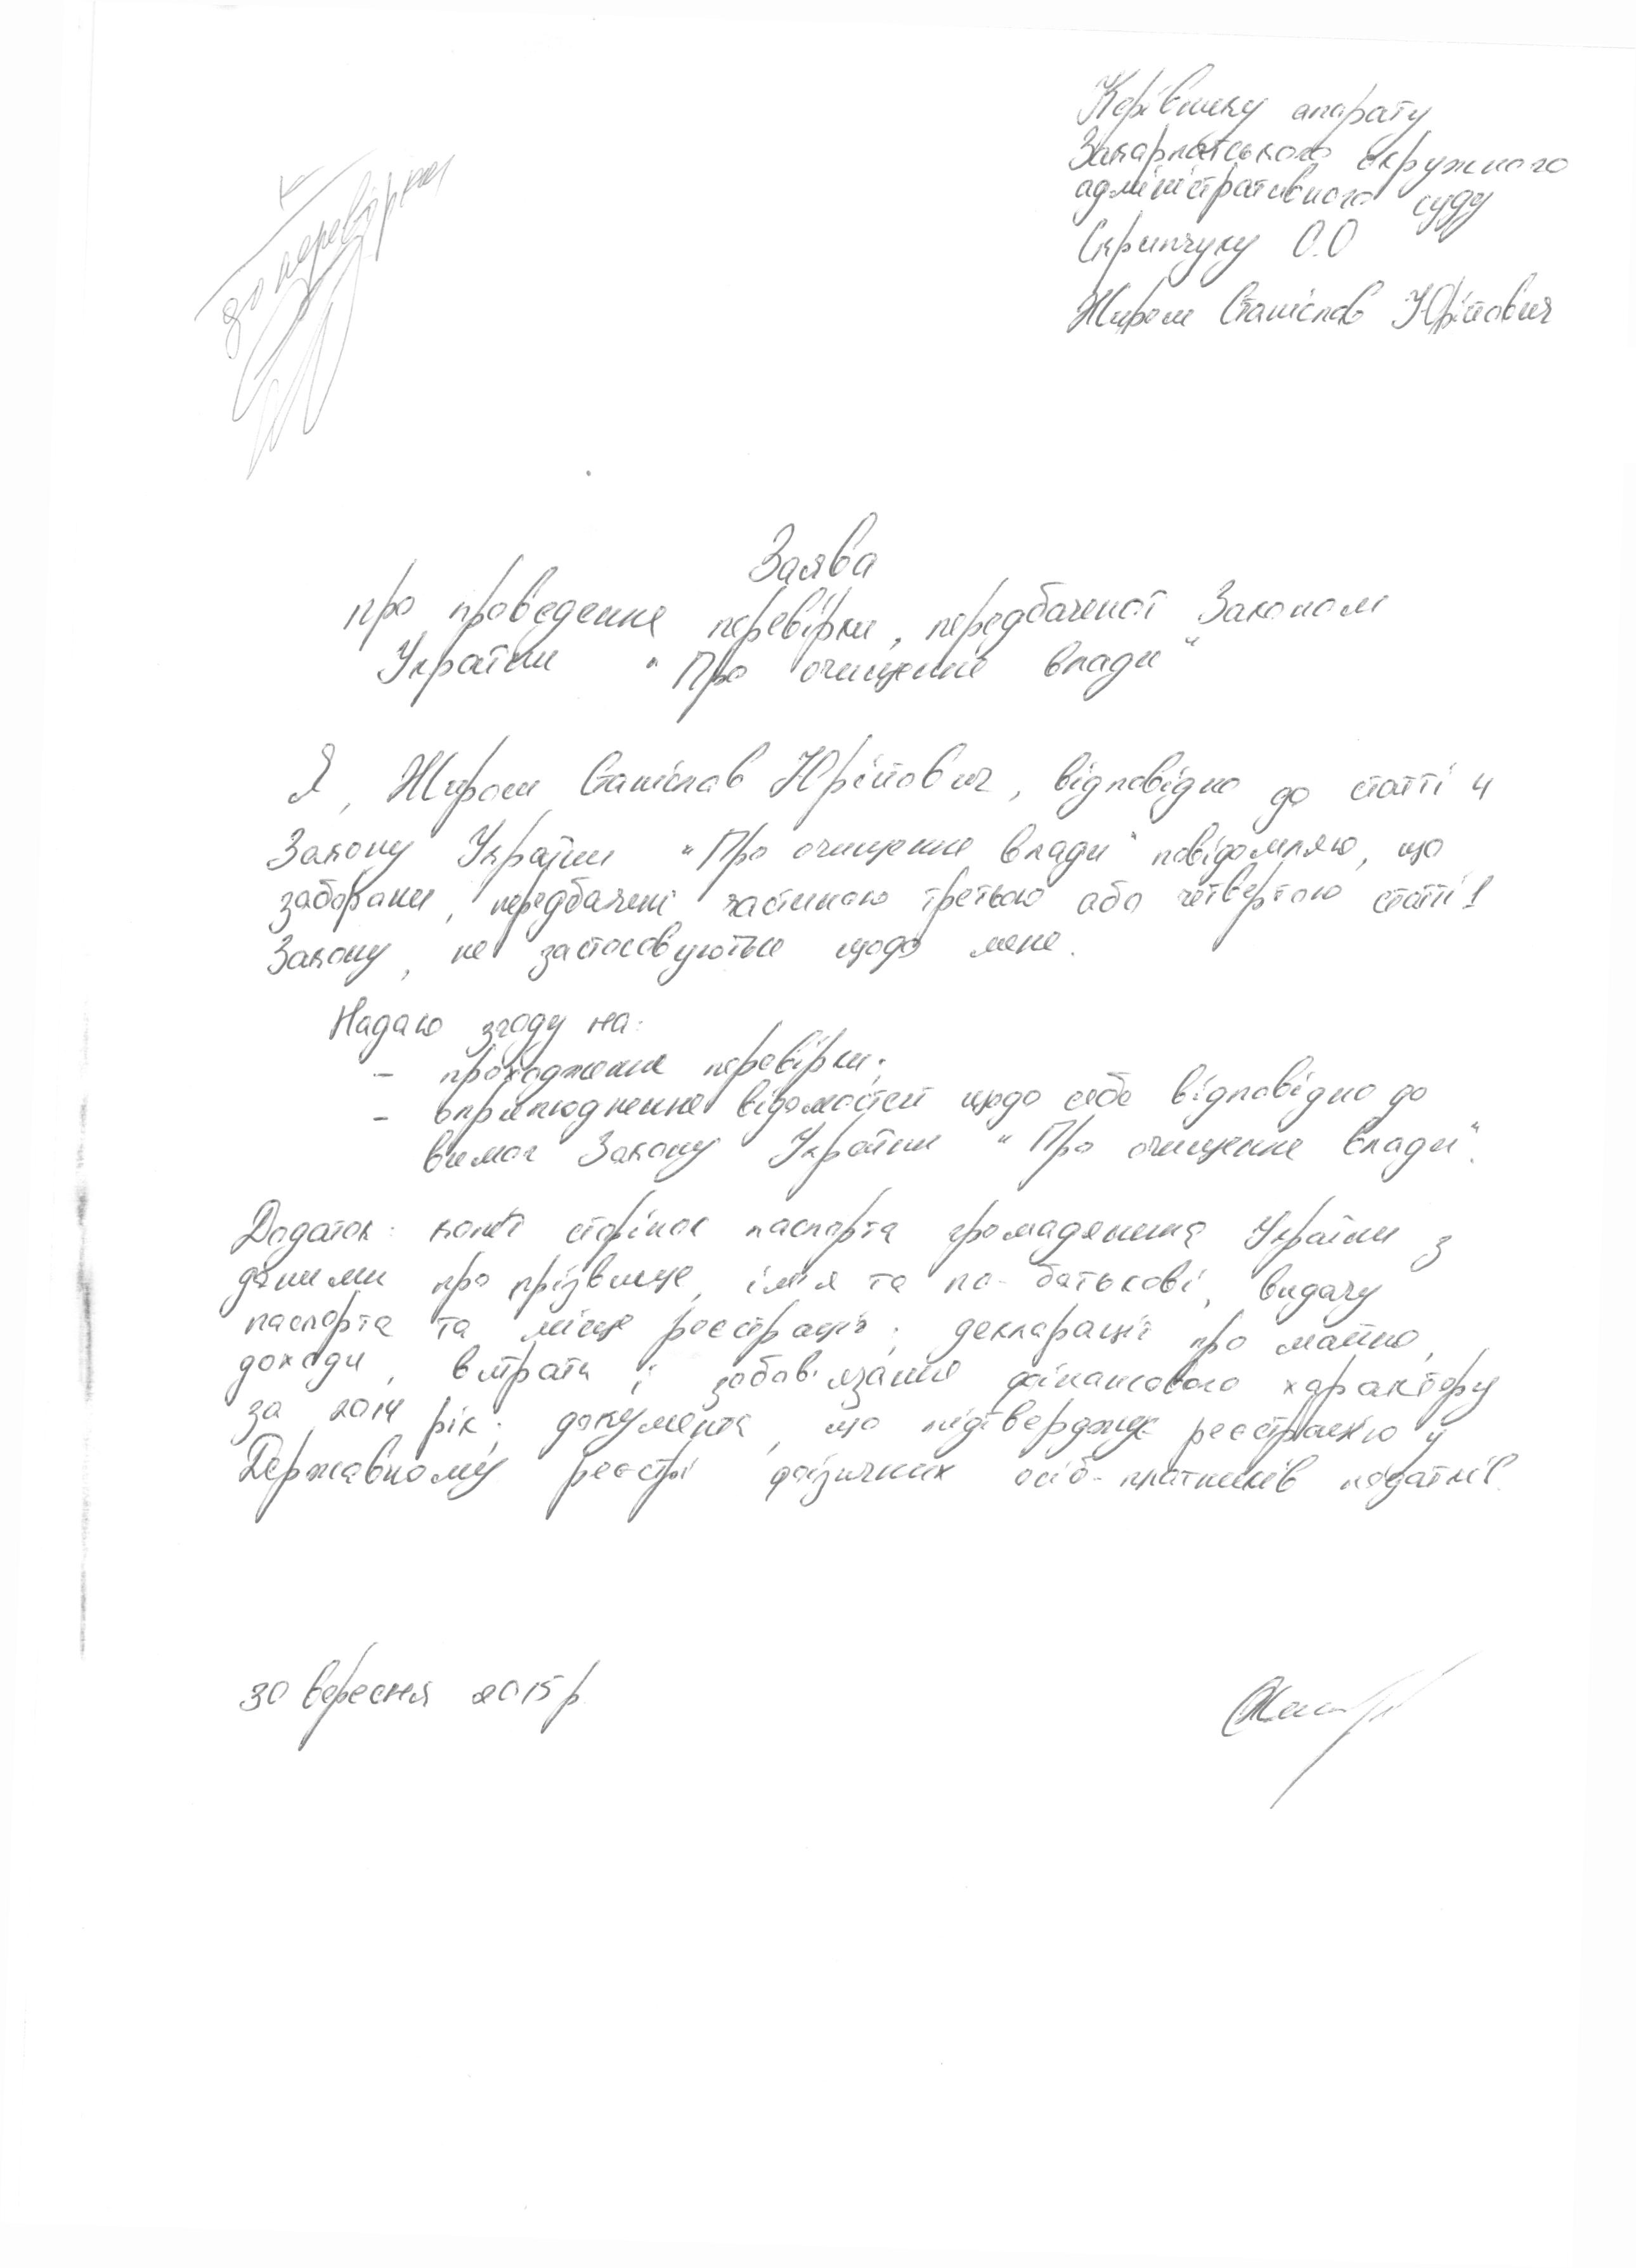 до перевірки
Керівнику апарату
Закарпатського окружного
адміністративного суду
Скрипчуку О.О
Жирош Станіслав Юрійович
Заява
про проведення перевірки, передбаченої Законом
України "Про очищення влади"
Я, Жирош Станіслав Юрійович, відповідно до статті 4
Закону України "Про очищення влади" повідомляю, що
заборони, передбачені частиною третьою або четвертою статті 1
Закону, не застосовуються щодо мене.
Надаю згоду на:
- проходження перевірки;
- оприлюднення відомостей щодо себе відповідно до
вимог Закону України "Про очищення влади".
Додаток: копії сторінок паспорта громадянина України з
даними про прізвище, ім'я та по-батькові, видачу
паспорта та місце реєстрації; декларації про майно,
доходи, витрати і зобов'язання фінансового характеру
за 2014 рік; документа, що підтверджує реєстрацію у
Державному реєстрі фізичних осіб-платників податків.
30 вересня 2015 р